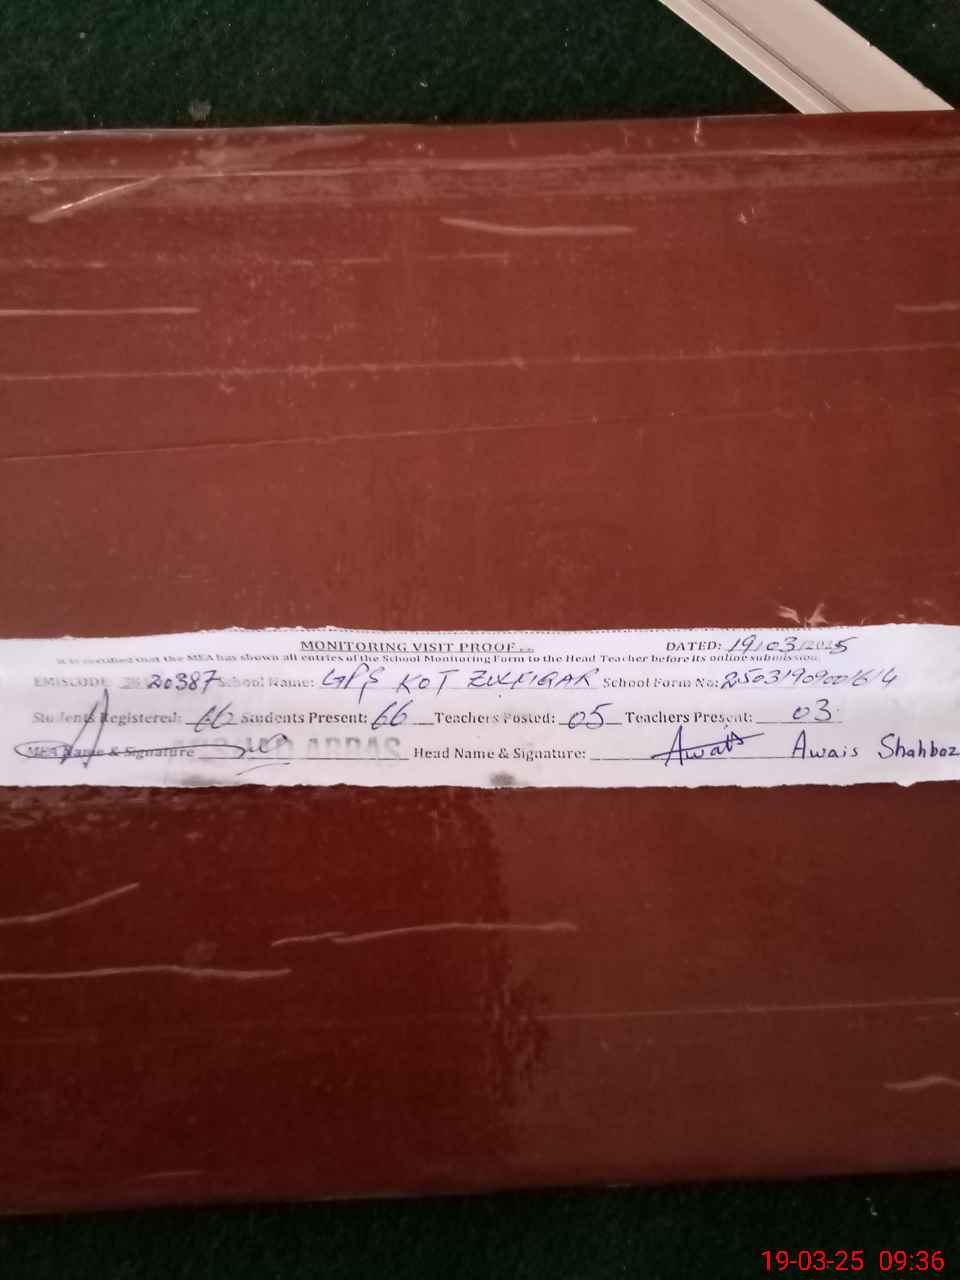 MONITORING VISIT PROOF DATED: 19/03/2025
It is certified that the MEA has shown all entries of the School Monitoring Form to the Head Teacher before its online submission.
EMISCODE 20387 School Name: GPS KOT ZULFIQAR School Form No:
Students Registered: 66 Students Present: 66 Teachers Posted: 05 Teachers Present: 03
MEA Name & Signature ABBAS Head Name & Signature: Awais Awais Shahbaz
19-03-25 09:36